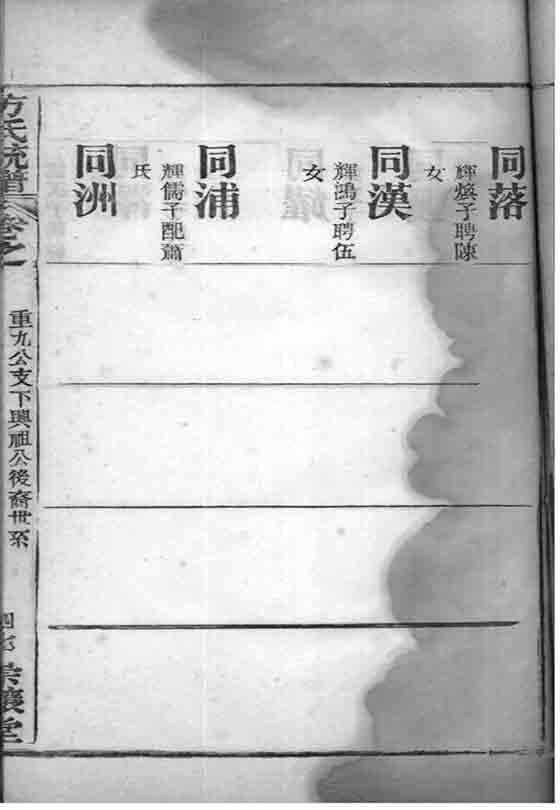 同落
輝煥子聘陳
女
同漢
輝鴻子聘伍
女
同浦
輝儒子配蕭
氏
同洲
方氏統譜 卷之
重九公支下興祖公後裔世系
四七
堂